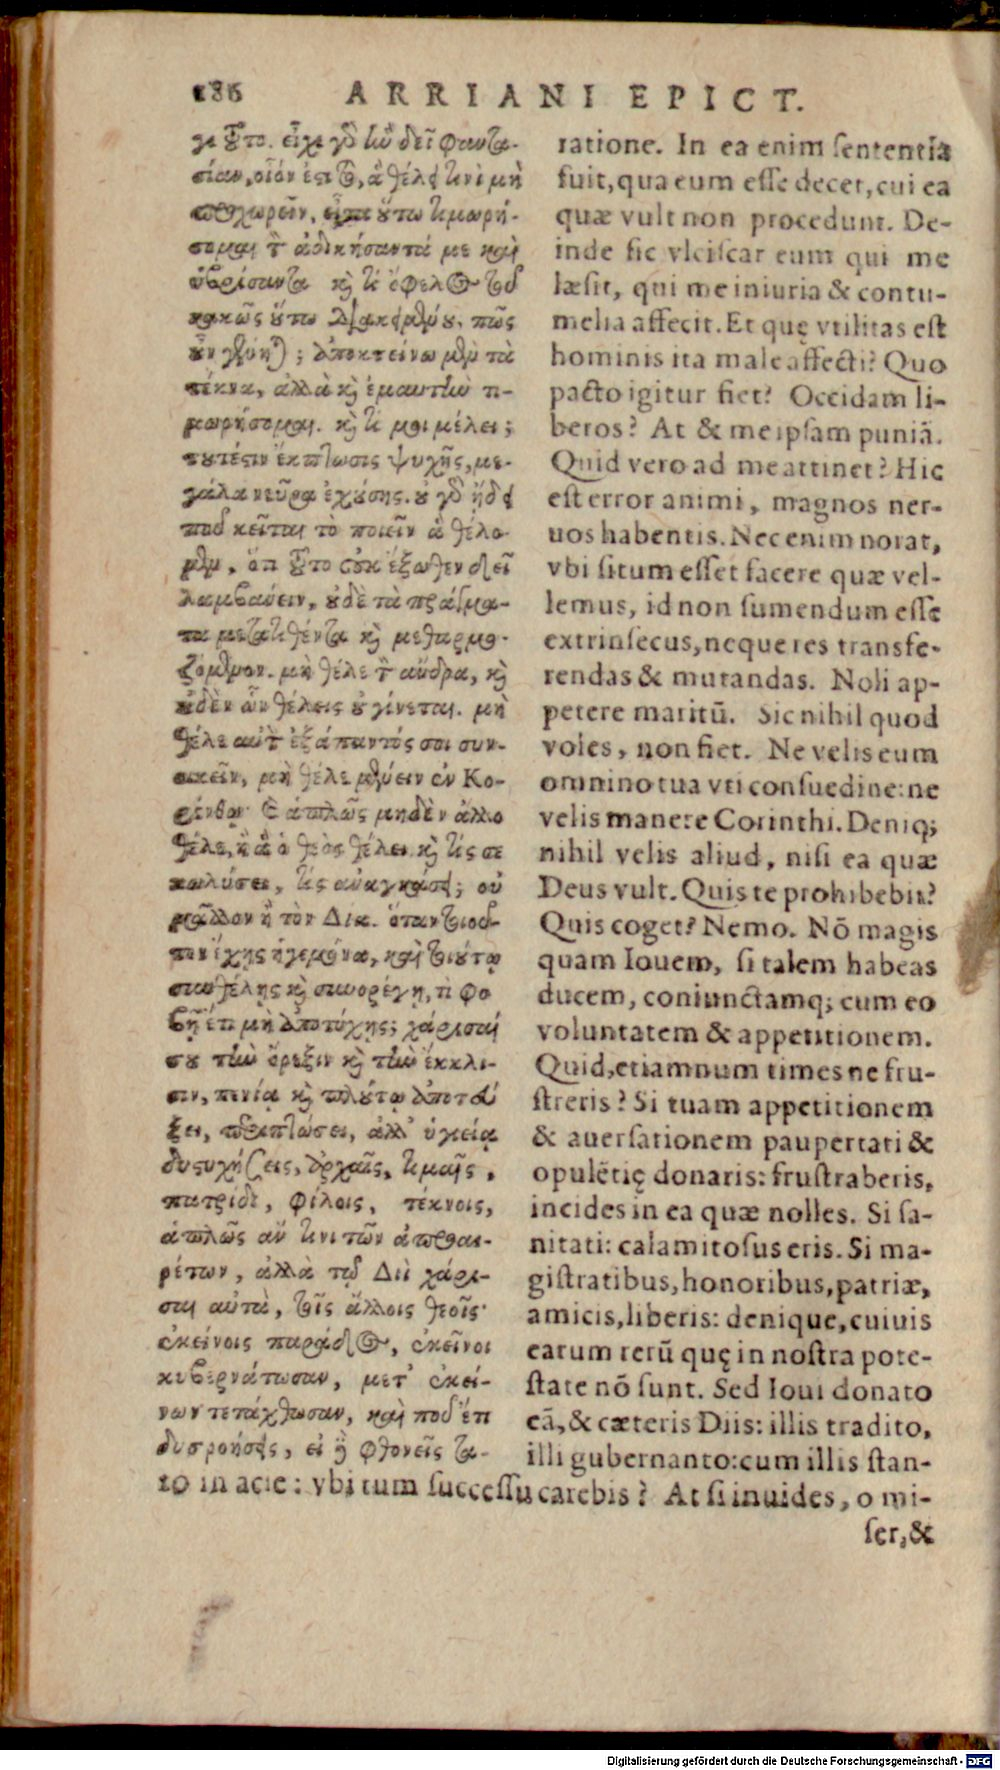 186 ARRIANI EPICT.
γε τοῦτο. εἶχε γὸ ἣν δεῖ φαντα-
σίαν, οἷόν ἐστι τὸ, ἃ θέλει τινὶ μὴ
προχωρεῖν, εἶτα οὕτω τιμωρή-
σομαι τὸν ἀδικήσαντά με καὶ
ὑβρίσαντα καὶ τί ὄφελος τοῦ
κακῶς οὕτω διακειμένου. πῶς
οὖν γένηται; ἀποκτείνω μὲν τὰ
τέκνα, ἀλλὰ καὶ ἐμαυτὴν τι-
μωρήσομαι. καὶ τί μοι μέλει;
τουτέστιν ἔκπτωσις ψυχῆς, με-
γάλα νεῦρα ἐχούσης. οὐ γὸ ᾔδει
ποῦ κεῖται τὸ ποιεῖν ἃ θέλο-
μεν, ὅτι τοῦτο οὐκ ἔξωθεν δεῖ
λαμβάνειν, οὐδὲ τὰ πράγμα-
τα μετατιθέντα καὶ μεθαρμο-
ζόμενον. μὴ θέλε τὸν ἄνδρα, καὶ
οὐδὲν ὧν θέλεις οὐ γίνεται. μὴ
θέλε αὐτὸν ἐξάπαντός σοι συν-
οικεῖν, μὴ θέλε μένειν ἐν Κο-
ρίνθῳ· καὶ ἁπλῶς μηδὲν ἄλλο
θέλε, ἢ ἃ ὁ θεὸς θέλει. καὶ τίς σε
κωλύσει, τίς ἀναγκάσει; οὐ
μᾶλλον ἢ τὸν Δία. ὅταν τοιοῦ-
τον ἔχῃς ἡγεμόνα, καὶ τοιούτῳ
συνθέλῃς καὶ συνορέγῃ, τί φο
βῇ ἔτι μὴ ἀποτύχῃς; χάρισαί
σου τὴν ὄρεξιν καὶ τὴν ἔκκλι-
σιν, πενίᾳ καὶ πλούτῳ ἀποτεύ
ξει, περιπτώσει, ἀλλ' ὑγιείᾳ
δυστυχήσεις, ἀρχαῖς, τιμαῖς,
πατρίδι, φίλοις, τέκνοις,
ἁπλῶς ἄν τινι τῶν ἀπροαι-
ρέτων, ἀλλὰ τῷ Διῒ χάρι-
σαι αὐτὰ, τοῖς ἄλλοις θεοῖς·
ἐκείνοις παράδος, ἐκεῖνοι
κυβερνάτωσαν, μετ' ἐκεί-
νων τετάχθωσαν, καὶ ποῦ ἔτι
δυσροήσεις, εἰ δὲ φθονεῖς τα-
ratione. In ea enim sententia
fuit, qua eum esse decet, cui ea
quæ vult non procedunt. De-
inde sic vlciscar eum qui me
læsit, qui me iniuria & contu-
melia affecit. Et quę vtilitas est
hominis ita male affecti? Quo
pacto igitur fiet? Occidam li-
beros? At & me ipsam puniã.
Quid vero ad me attinet? Hic
est error animi, magnos ner-
uos habentis. Nec enim norat,
vbi situm esset facere quæ vel-
lemus, id non sumendum esse
extrinsecus, neque res transfe-
rendas & mutandas. Noli ap-
petere maritũ. Sic nihil quod
voles, non fiet. Ne velis eum
omnino tua vti consuedine: ne
velis manere Corinthi. Deniq;
nihil velis aliud, nisi ea quæ
Deus vult. Quis te prohibebit?
Quis coget? Nemo. Nõ magis
quam Iouem, si talem habeas
ducem, coniunctamq; cum eo
voluntatem & appetitionem.
Quid, etiamnum times ne fru-
streris? Si tuam appetitionem
& auersationem paupertati &
opulẽtię donaris: frustraberis,
incides in ea quæ nolles. Si sa-
nitati: calamitosus eris. Si ma-
gistratibus, honoribus, patriæ,
amicis, liberis: denique, cuiuis
earum rerũ quę in nostra pote-
state nõ sunt. Sed Ioui donato
eã, & cæteris Diis: illis tradito,
illi gubernanto: cum illis stan-
to in acie: vbi tum successu carebis? At si inuides, o mi-
ser, &
Digitalisierung gefördert durch die Deutsche Forschungsgemeinschaft - DFG